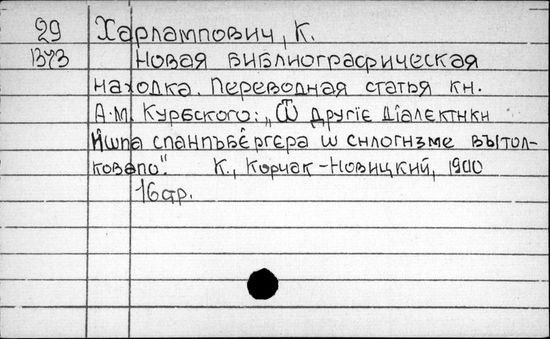 29 Харлампович, К.
1373 Новая библиографическая
находка. Переводная статья кн.
А.М. Курбского: „Ѿ другіє діалєктики
Иѡна спанънъбергєра ѡ силогизме вытол-
ковано". К., Корчак-Новицкий, 1900
16 стр.